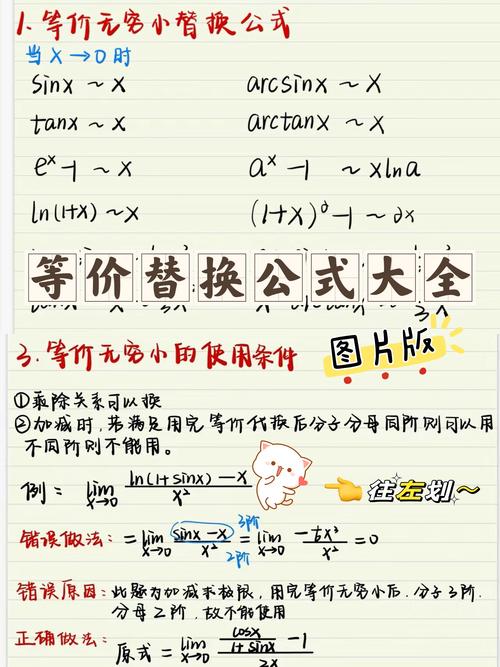 1. 等价无穷小替换公式
当 X→0 时
sinx ~ X arcsinx ~ X
tanx ~ X arctanx ~ X
e^x-1 ~ X a^x-1 ~ xlna
ln(1+x) ~ X (1+X)^∂-1 ~ ∂x
等价替换公式大全
图片版
3. 等价无穷小的使用条件
①乘除关系可以换
②加减时,若满足用完等价代换后分子分母同阶则可以用
不同阶则不能用。
例: lim x→0 ln(1+sinx)-x / x²
往左划~
错误做法: = lim x→0 sinx-x / x² 3阶 2阶 = lim x→0 -1/6x³ / x² = 0
错误原因: 此题为加减求极限,用完等价无穷小后,分子3阶.
分母2阶,故不能使用
正确做法: 原式 = lim x→0 cosx / 1+sinx - 1 / 2x